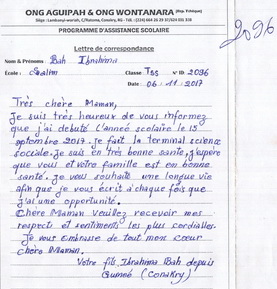 ONG AGUIPAH & ONG WONTANARA
PROGRAMME D'ASSISTANCE SCOLAIRE
2096
Lettre de correspondance
Nom & Prénoms : Bah Ibrahima
École : Salim Classe TSS N° ID 2096
Date 06.11.2017
Très chère Maman,
Je suis très heureux de vous informez
que j'ai debuté l'année scolaire le 15
septembre 2017. je fait le terminal science
sociale. Je suis en très bonne santé, j'espère
que vous et votre famille est en bonne
santé. je vous souhaite une longue vie
afin que je vous écrit à chaque fois que
j'ai une opportunité.
Chère Maman veuillez recevoir mes
respects et sentiments les plus cordialles.
Je vous embrasse de tout mon cœur
chère Maman.
Votre fils Ibrahima Bah depuis
Guineé (Conakry)